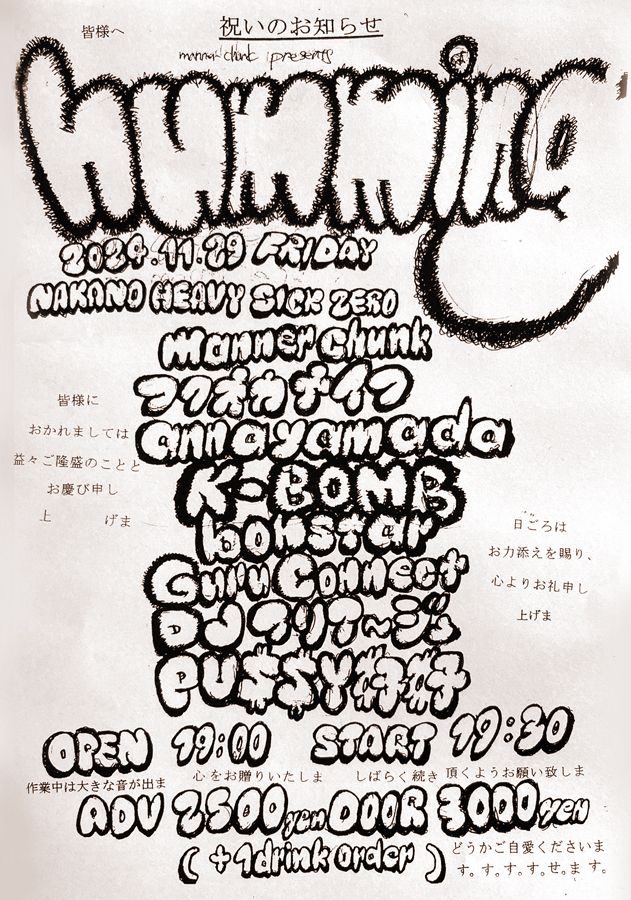 祝いのお知らせ
皆様へ
manner chunk presents
humming
2024.11.29 FRIDAY
NAKANO HEAVY SICK ZERO
manner chunk
フクオカナイフ
annayamada
K-BOMB
bonstar
Guru Connect
DJ フリア〜ジュ
PU$$Y好好
皆様に
おかれましては
益々ご隆盛のことと
お慶び申し
上 げま
日ごろは
お力添えを賜り、
心よりお礼申し
上げま
OPEN 19:00 START 19:30
作業中は大きな音が出ま
心をお贈りいたしま
しばらく続き 頂くようお願い致しま
ADV 2500yen DOOR 3000yen
(+1drink order)
どうかご自愛くださいま
す。す。す。す。せ。ま す。